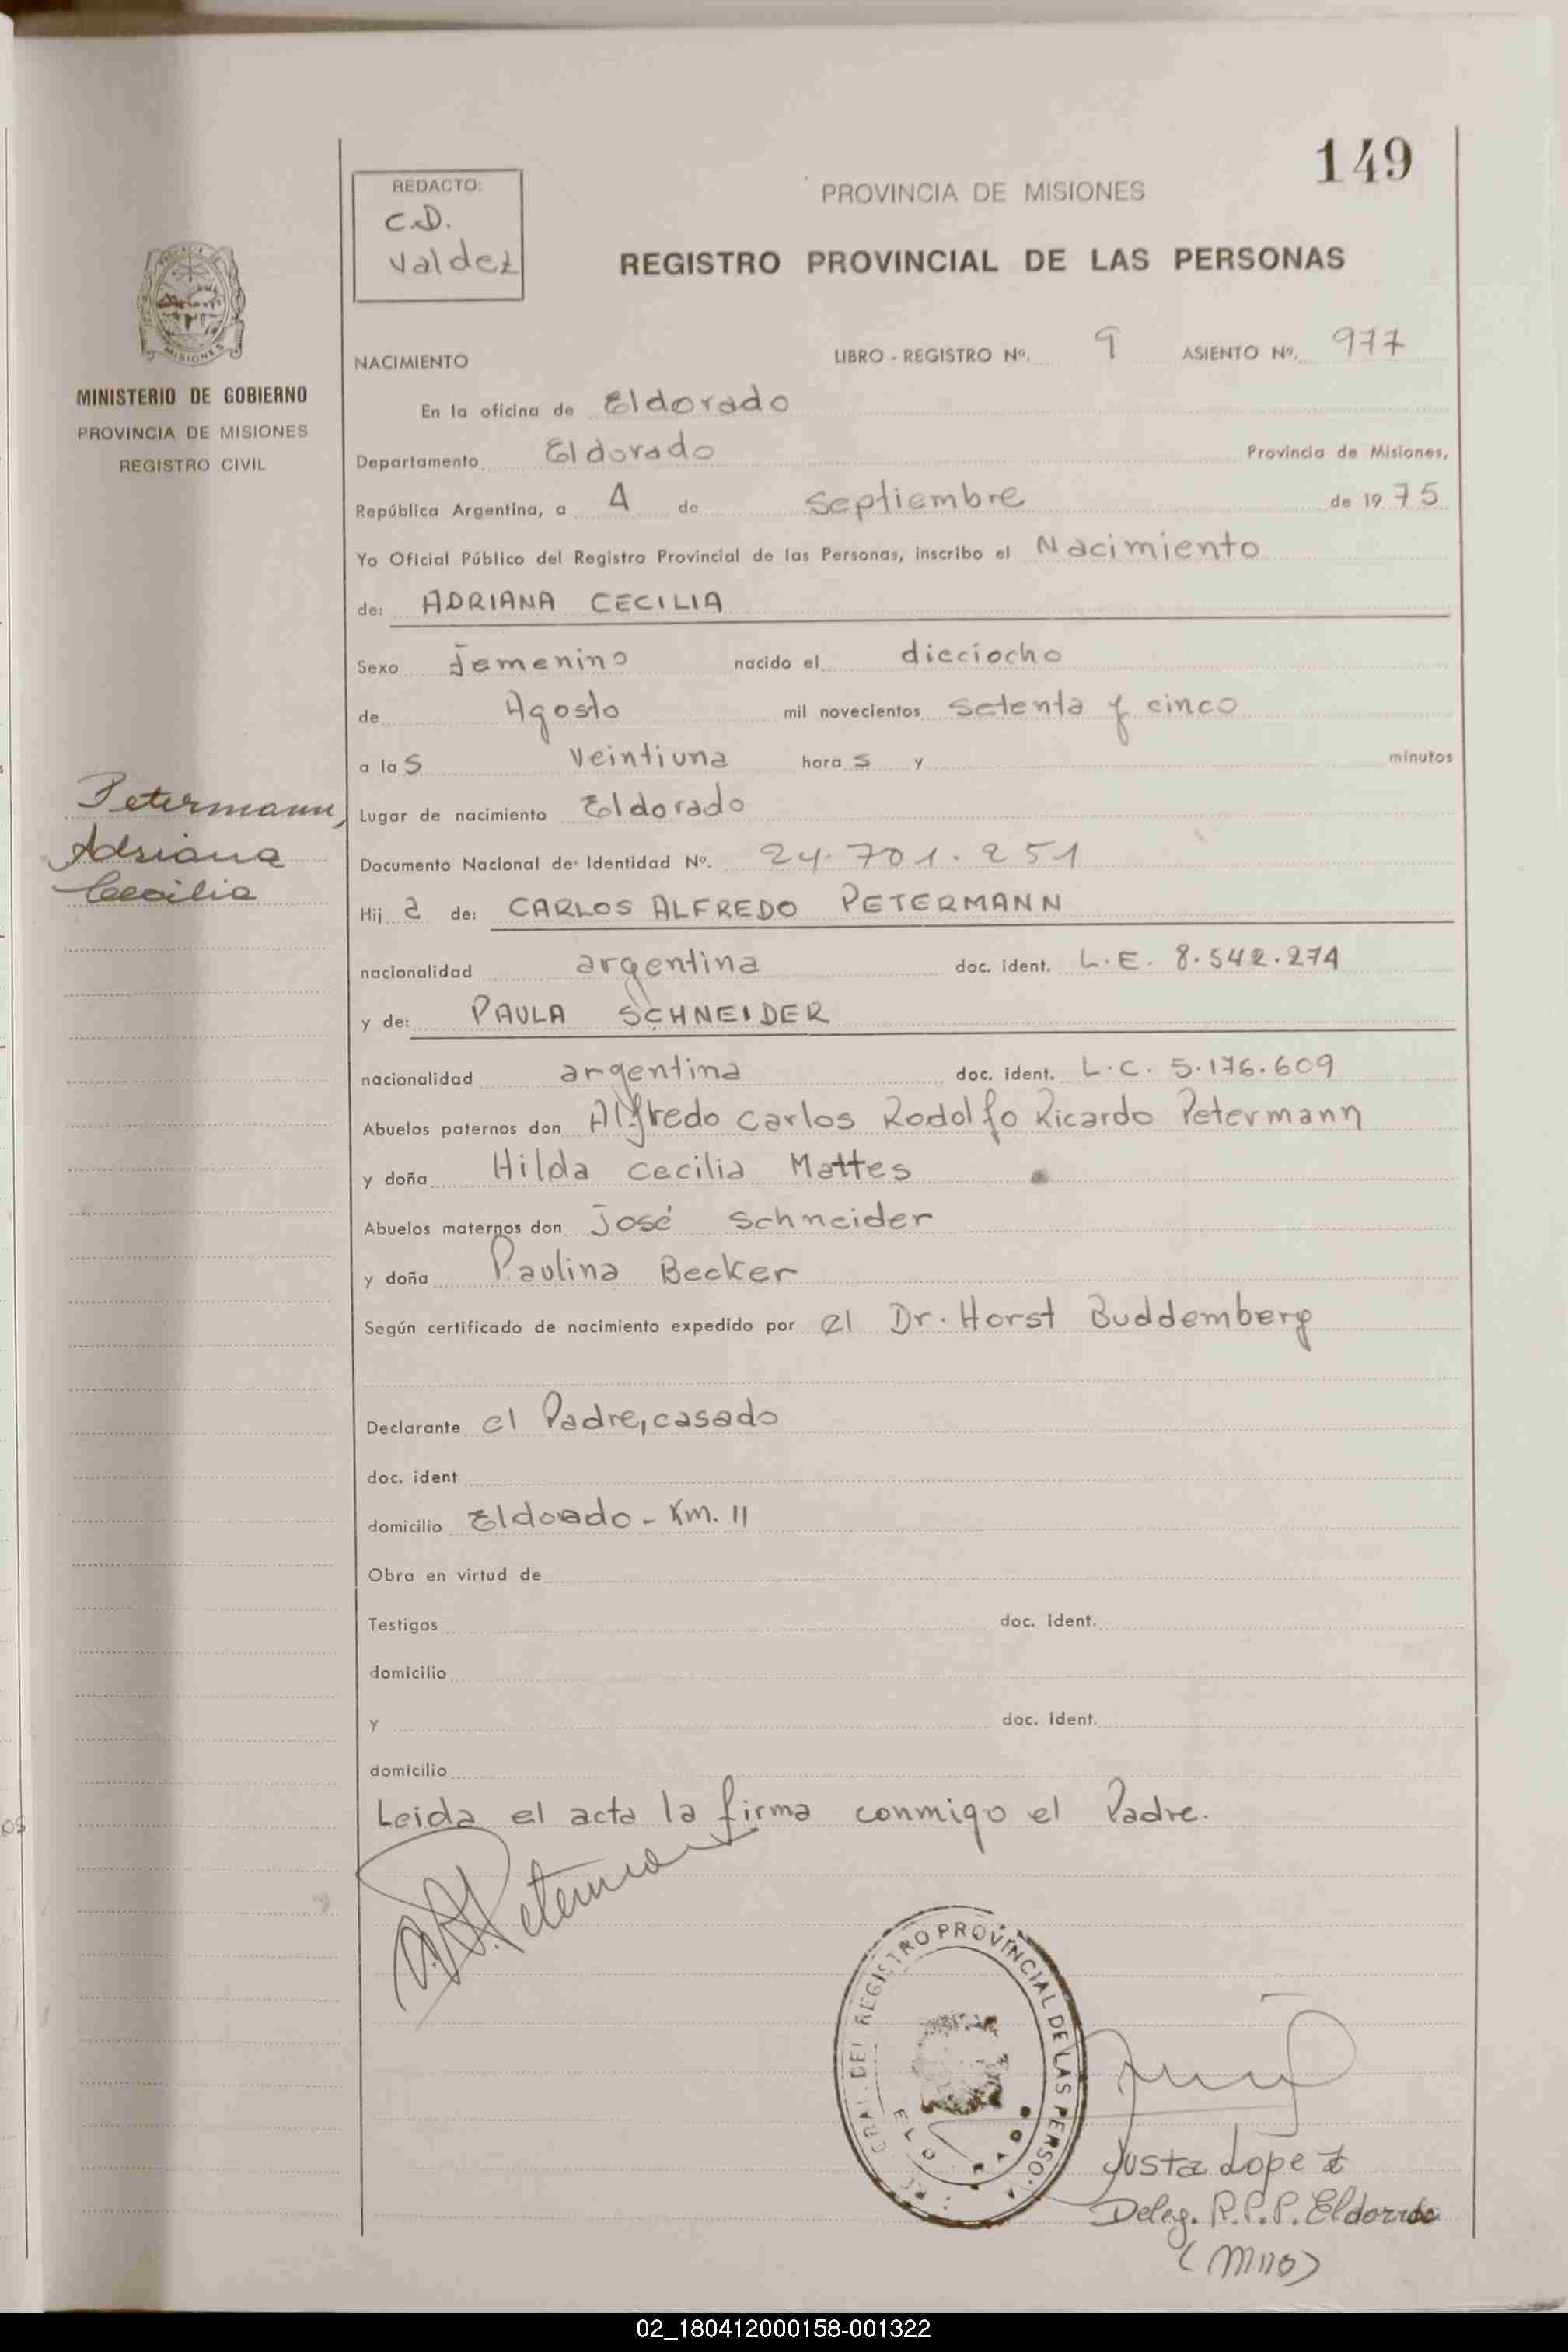 149
REDACTO:
C.D.
Valdez
PROVINCIA DE MISIONES
REGISTRO PROVINCIAL DE LAS PERSONAS
MISIONES
MINISTERIO DE GOBIERNO
PROVINCIA DE MISIONES
REGISTRO CIVIL
NACIMIENTO LIBRO - REGISTRO Nº. 9 ASIENTO Nº. 977
En la oficina de Eldorado
Departamento Eldorado Provincia de Misiones,
República Argentina, a 4 de Septiembre de 1975
Yo Oficial Público del Registro Provincial de las Personas, inscribo el Nacimiento
de: ADRIANA CECILIA
Sexo femenino nacido el dieciocho
de Agosto mil novecientos setenta y cinco
a las veintiuna horas y minutos
Petermann,
Adriana
Cecilia
Lugar de nacimiento Eldorado
Documento Nacional de Identidad Nº. 24.701.251
Hija de: CARLOS ALFREDO PETERMANN
nacionalidad argentina doc. ident. L.E. 8.542.274
y de: PAULA SCHNEIDER
nacionalidad argentina doc. ident. L.C. 5.176.609
Abuelos paternos don Alfredo Carlos Rodolfo Ricardo Petermann
y doña Hilda Cecilia Mattes
Abuelos maternos don José Schneider
y doña Paulina Becker
Según certificado de nacimiento expedido por el Dr. Horst Buddemberg
Declarante el Padre, casado
doc. ident
domicilio Eldorado - Km. 11
Obra en virtud de
Testigos doc. ident.
domicilio
y doc. ident.
domicilio
Leida el acta la firma conmigo el Padre.
REGISTRO PROVINCIAL DE LAS PERSO
Justa Lopez
Deleg. R.P.P. Eldorado
(Mnes)
02_180412000158-001322